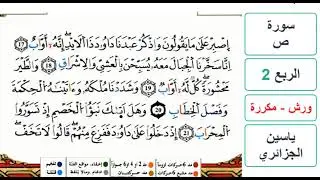 اِصْبِرْ عَلَىٰ مَا يَقُولُونَ وَاذْكُرْ عَبْدَنَا دَاوُۥدَ ذَا اَلَايْدِ إِنَّهُۥٓ أَوَّابٌ 17
اِنَّا سَخَّرْنَا اَلْجِبَالَ مَعَهُۥ يُسَبِّحْنَ بِالْعَشِيِّ وَالِاشْرَاقِ 18 وَالطَّيْرَ
مَحْشُورَةً كُلٌّ لَّهُۥٓ أَوَّابٌ 19 وَشَدَدْنَا مُلْكَهُۥ وَءَاتَيْنَٰهُ اُلْحِكْمَةَ
وَفَصْلَ اَلْخِطَابِ 20 وَهَلَ اَتَيٰكَ نَبَؤُاْ اُلْخَصْمِ إِذْ تَسَوَّرُواْ
اُلْمِحْرَابَ 21 إِذْ دَخَلُواْ عَلَىٰ دَاوُۥدَ فَفَزِعَ مِنْهُمْ قَالُواْ لَا تَخَفْ
سورة
ص
الربع 2
ورش - مكررة
ياسين
الجزائري